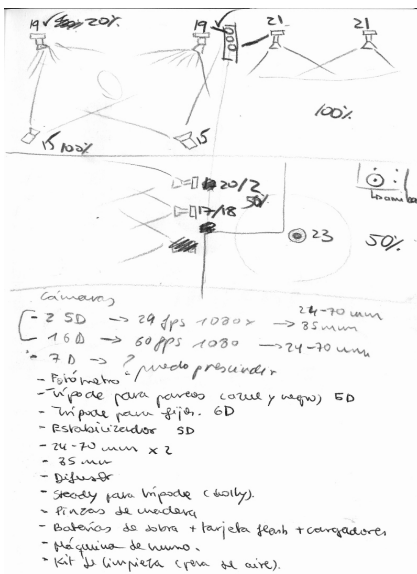 19 20%
19
21
21
100%
15 100%
15
20/2
50%
17/18
23
50%
Cámaras
- 2 5D → 29 fps 1080x → 24-70 mm
35mm
- 1 6D → 60 fps 1080 → 24-70 mm
- 7D → ? puedo prescindir
- Fotómetro
- Trípode para paneos (azul y negro) 5D
- Trípode para fijos. 6D
- Estabilizador 5D
- 24-70 mm x 2
- 35 mm
- Difusor
- Steady para trípode (dolly).
- Pinzas de madera
- Baterías de sobra + tarjeta flash + cargadores
- Máquina de humo.
- Kit de limpieza (pera de aire).